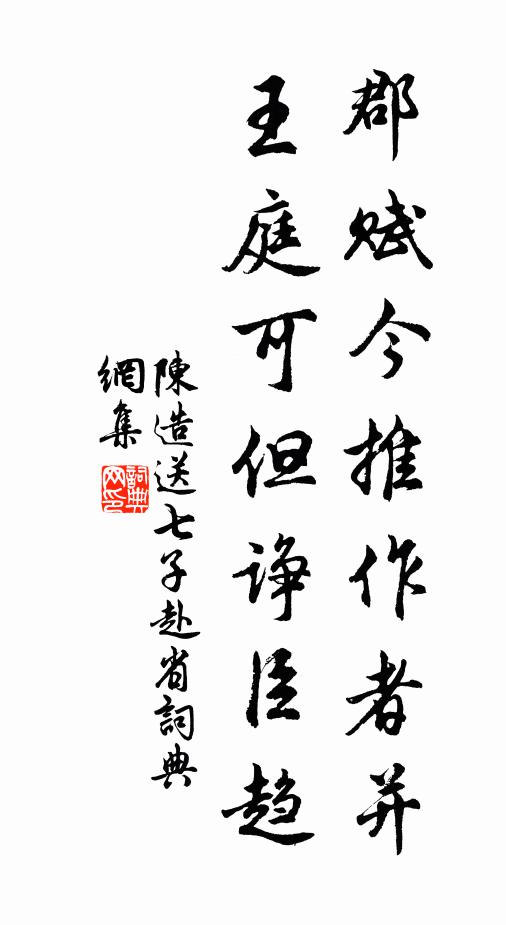 郡赋今推作者并
王庭可但诤臣趋
陳造送七子赴省詞典
網集
詞典網印